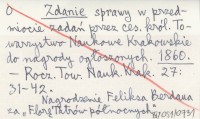 O Zdanie sprawy w przed-
miocie zadań przez ces. król. To-
warzystwo Naukowe Krakowskie
do nagrody ogłoszonych. 1860.
– Rocz. Tow. Nauk. Krak. 27:
31-42.
Nagrodzenie Feliksa Berdana
za „Florę Tatrów północnych"